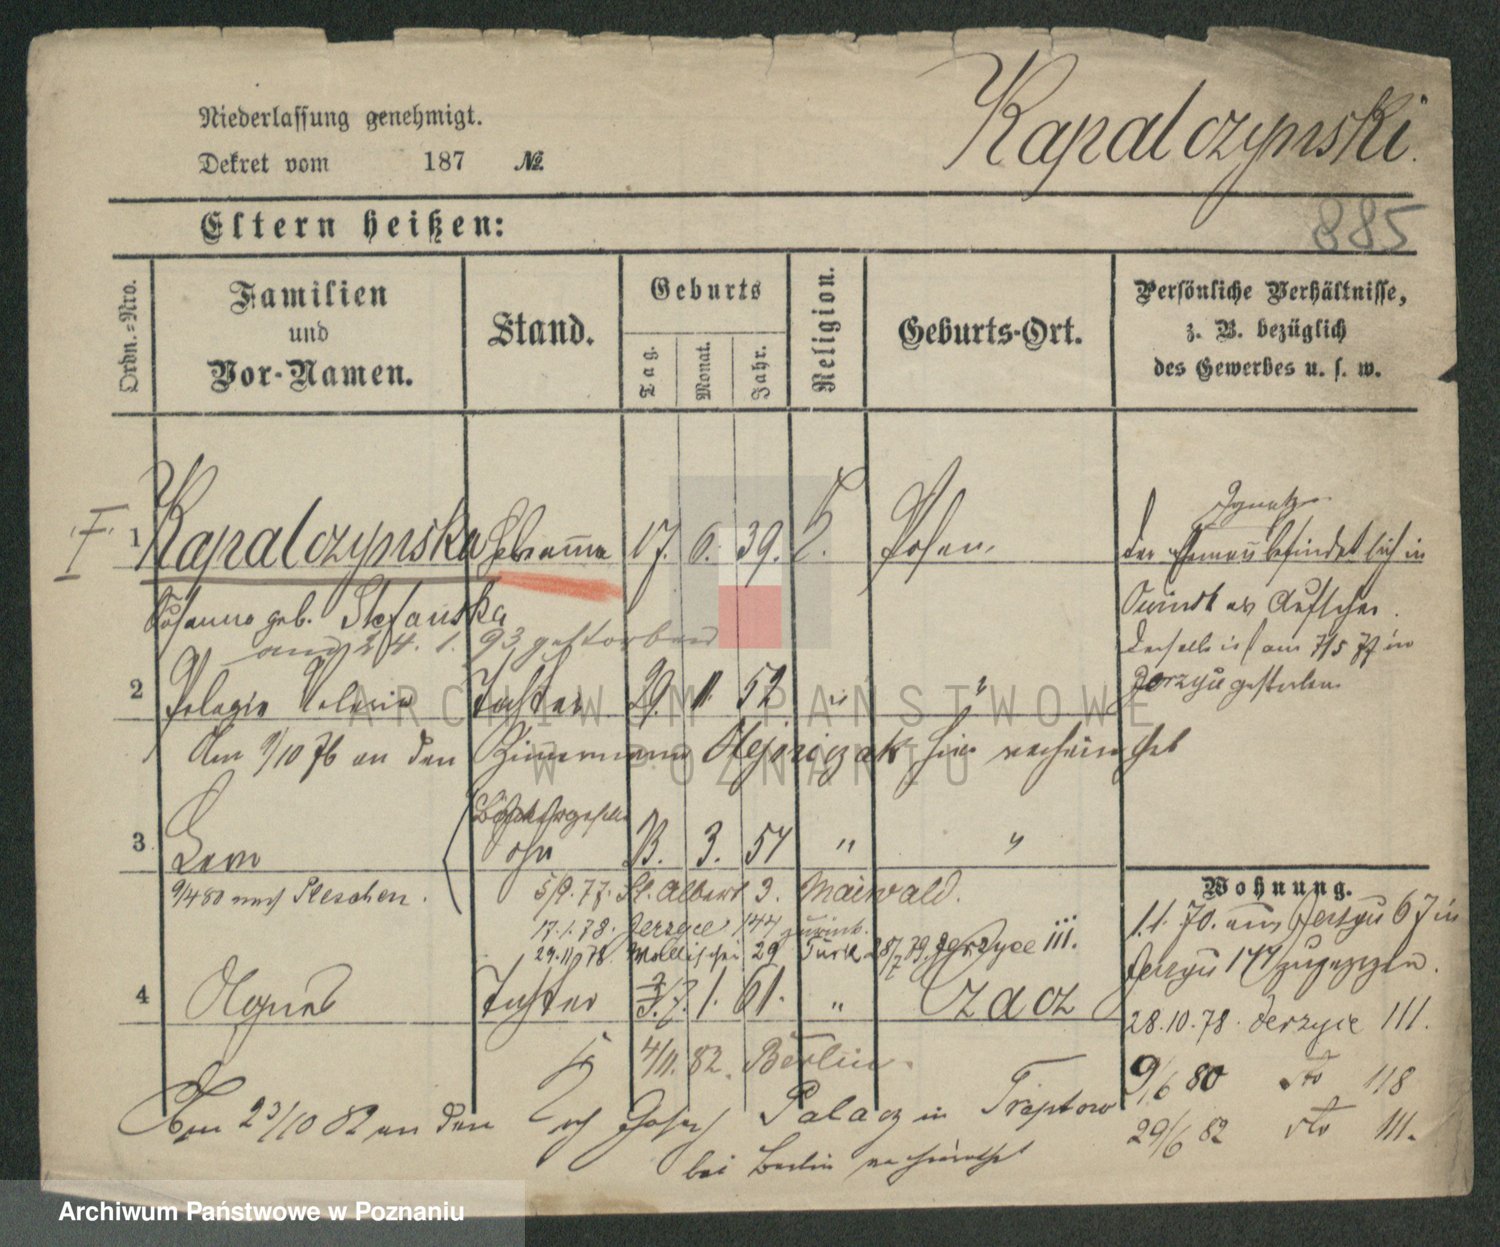 Niederlassung genehmigt.
Dekret vom 187 №
Kapalczynski.
885
Eltern heißen:
Ordn.-Nro.
Familien
und
Vor-Namen.
Stand.
Geburts
Tag.
Monat.
Jahr.
Religion.
Geburts-Ort.
Persönliche Verhältnisse,
z. B. bezüglich
des Gewerbes u. s. w.
1 Kapalczynska Hebamme 17. 6. 39. Posen
Ignatz
der befindet sich in
geb. Stefanska
Aufseher.
am 24. 1. 93 gestorben
derselbe ist am 7/5 77 in
2 Pelagia Valeria Tochter 29. 11 52 "
Jerzyce gestorben
Am 9/10 76 an den Zimmermann hier verheirathet
3 Leo 3. 57 " "
9/4 80 nach Pleschen.
5/9. 77. St. Adalbert 3. Maiwald.
17.1.78. Jerzyce 144 zurück.
29 Turk Jerzyce III.
Wohnung.
1.1. 70. aus Jerzyce 67 in
Jerzyce zugezogen.
4 Agnes Tochter 1. 61. " Czacz
28.10.78. Jerzyce 111.
4/11. 82. Berlin.
9/6 80 dto 118
29/6 82 dto 111.
Am 23/10 82 an den Palacz in Treptow
bei Berlin verheirathet
ARCHIWUM PAŃSTWOWE
W POZNANIU
Archiwum Państwowe w Poznaniu